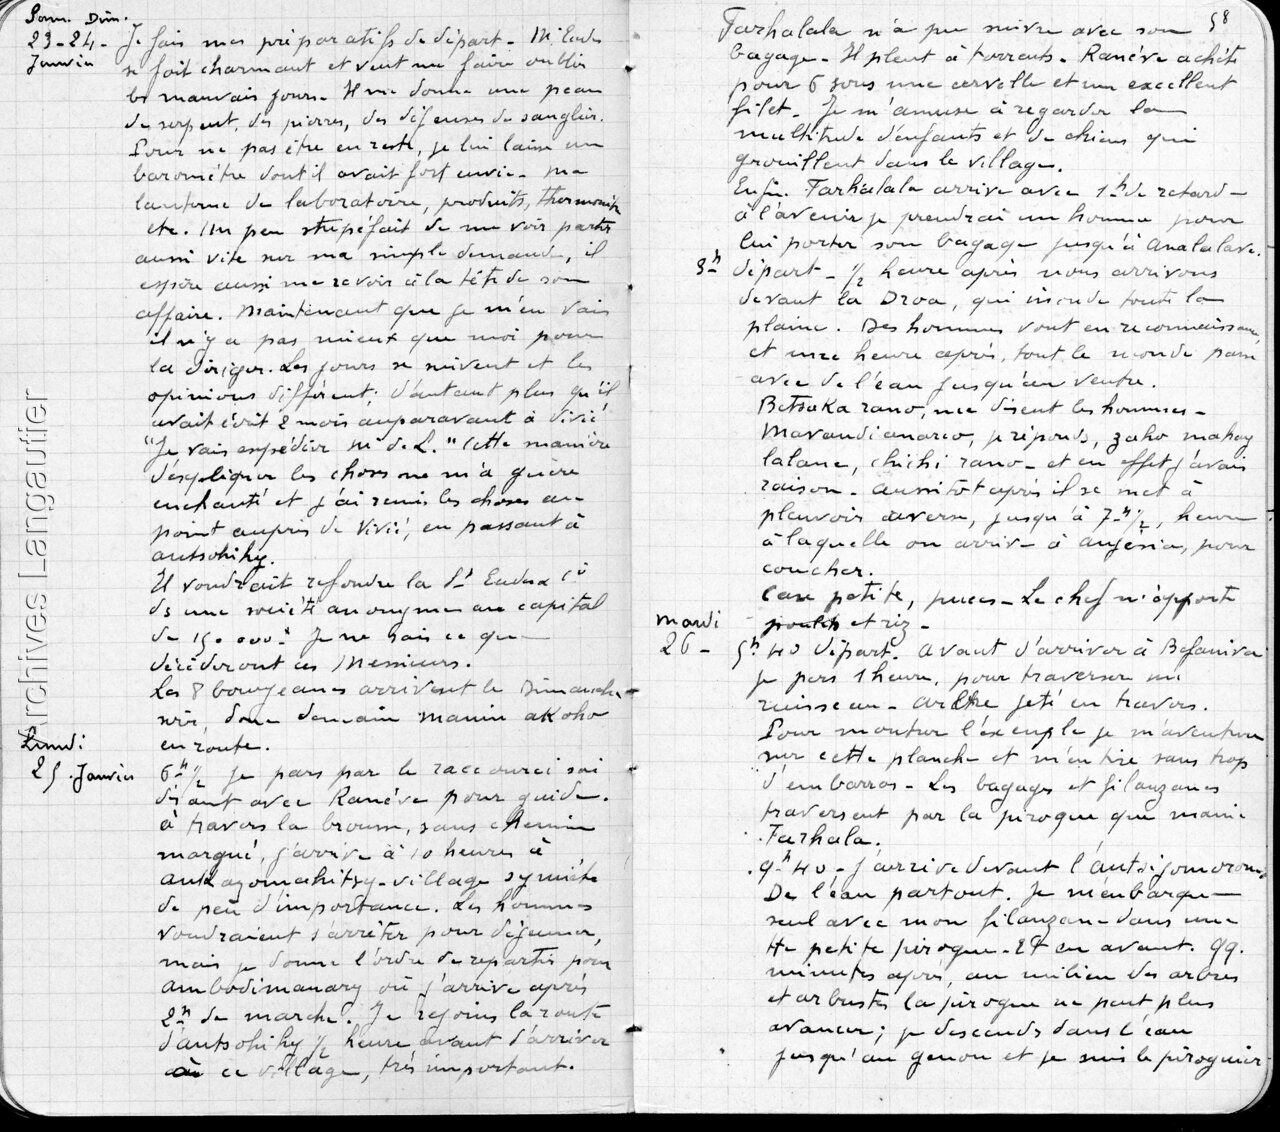 Sam. Dim.
23-24- Je fais mes préparatifs de départ - M. Eude
Janvier se fait charmant et veut me faire oublier
les mauvais jours. Il me donne une peau
de serpent, des pierres, des défenses de sanglier.
Pour ne pas être en reste, je lui laisse un
baromètre dont il avait fort envie - ma
lanterne de laboratoire, produits, thermomètre
etc. Un peu stupéfait de me voir partir
aussi vite sur ma simple demande, il
espère aussi me revoir à la tête de son
affaire. Maintenant que je m'en vais
il n'y a pas mieux que moi pour
la diriger. Les jours se suivent et les
opinions diffèrent; d'autant plus qu'il
avait écrit 2 mois auparavant à Vivié
"Je vais expédier Mr de L." Cette manière
d'expliquer les choses ne m'a guère
enchanté et j'ai remis les choses au
point auprès de Vivié, en passant à
antsohihy.
Il voudrait refondre la Sté Eude & Cie
ds une société anonyme au capital
de 150.000f Je ne sais ce que
décideront ces Messieurs.
Les 8 bourjeanes arrivent le Dimanche
soir, donc demain manin akoho
en route.
Lundi
25. Janvier 6h 1/2 Je pars par le raccourci soi
disant avec Ranéve pour guide.
à travers la brousse, sans chemin
marqué, j'arrive à 10 heures à
village
de peu d'importance. Les hommes
voudraient s'arrêter pour déjeuner,
mais je donne l'ordre de repartir pour
ambodimanary où j'arrive après
2h de marche. Je rejoins la route
d'antsohihy 1/2 heure avant d'arriver
à ce village, très important.
58
Farhalala n'a pu suivre avec son
bagage - Il pleut à torrents. Ranéve achète
pour 6 sous une cervelle et un excellent
filet. Je m'amuse à regarder la
multitude d'enfants et de chiens qui
grouillent dans le village.
Enfin. Farhalala arrive avec 1h de retard -
à l'avenir je prendrai un homme pour
lui porter son bagage jusqu'à analalava.
3h départ - 1/2 heure après nous arrivons
devant la Droa, qui inonde toute la
plaine. Des hommes vont en reconnaissance
et une heure après, tout le monde passe
avec de l'eau jusqu'au ventre.
Betsaka rano, me disent les hommes -
je réponds, zaho mahay
lalana, chichi rano - et en effet j'avais
raison - aussitôt après il se met à
pleuvoir averse, jusqu'à 7h 1/2, heure
à laquelle on arrive à anjésia, pour
coucher.
Case petite, puces - Le chef m'apporte
poulets et riz -
Mardi
26 - 5h 40 départ. Avant d'arriver à Befaniva
je pers 1 heure, pour traverser un
ruisseau - arbre jeté en travers.
Pour montrer l'exemple je m'aventure
sur cette planche et m'en tire sans trop
d'embarras - Les bagages et filanzanes
traversent par la pirogue que manie
Farhala.
9h 40 - J'arrive devant
De l'eau partout. Je m'embarque
seul avec mon filanzane dans une
tte petite pirogue - Et en avant. qq.
minutes après, au milieu des arbres
et arbustes la pirogue ne peut plus
avancer; je descends dans l'eau
jusqu'au genou et je suis le piroguier
Archives Langautier